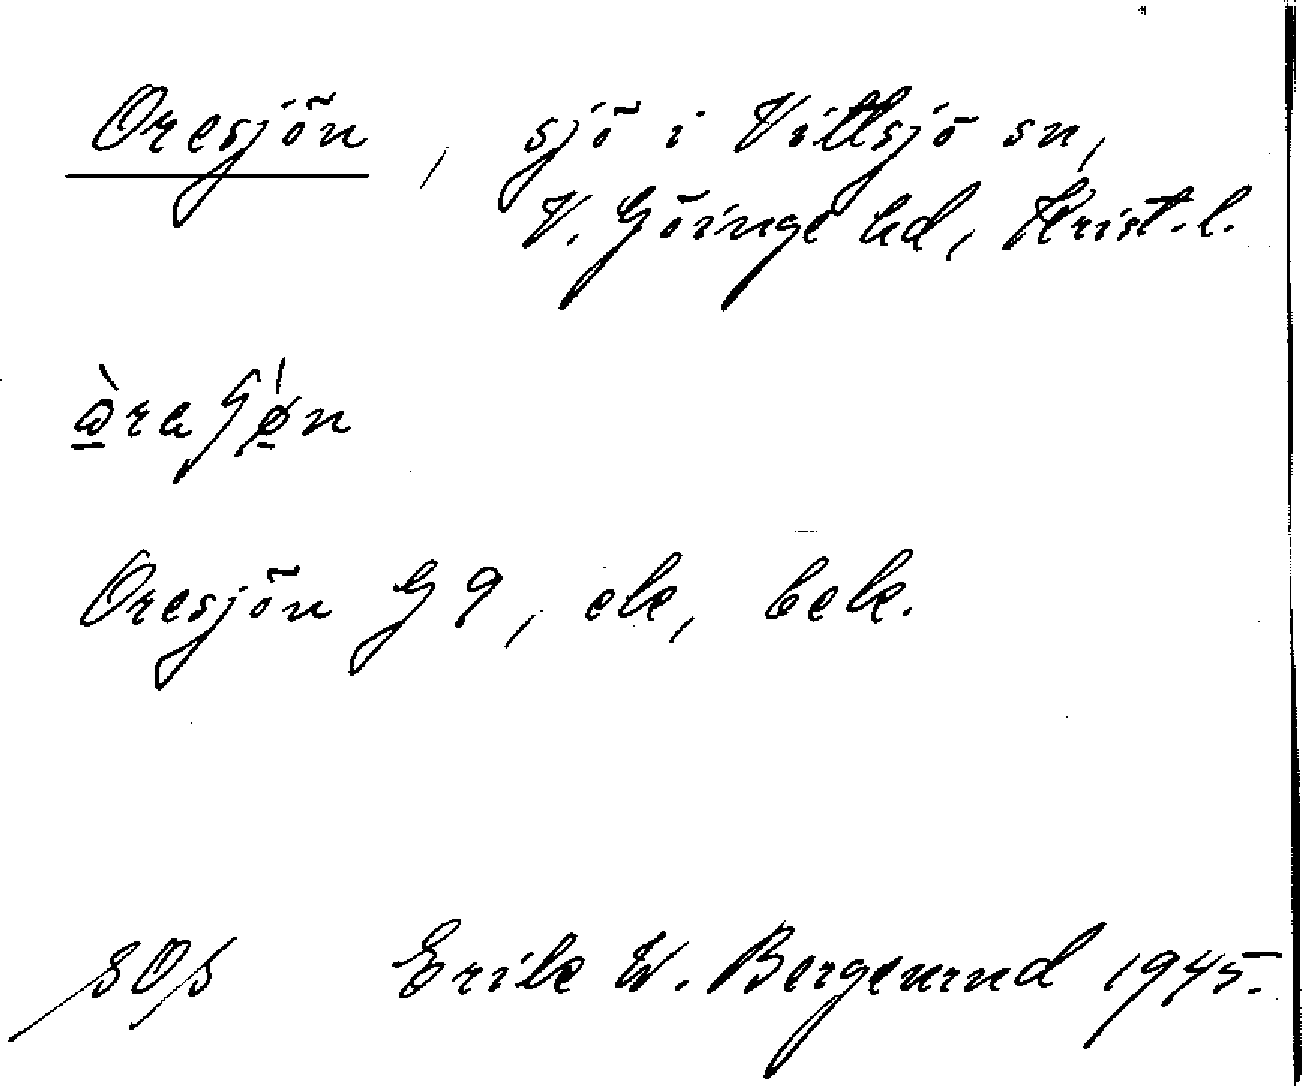 Oresjön, sjö i Vittsjö sn,
V. Göinge hd, Krist. l.
Oresjön G 9, ek, bek.
SOS Erik W. Bergenrud 1945.